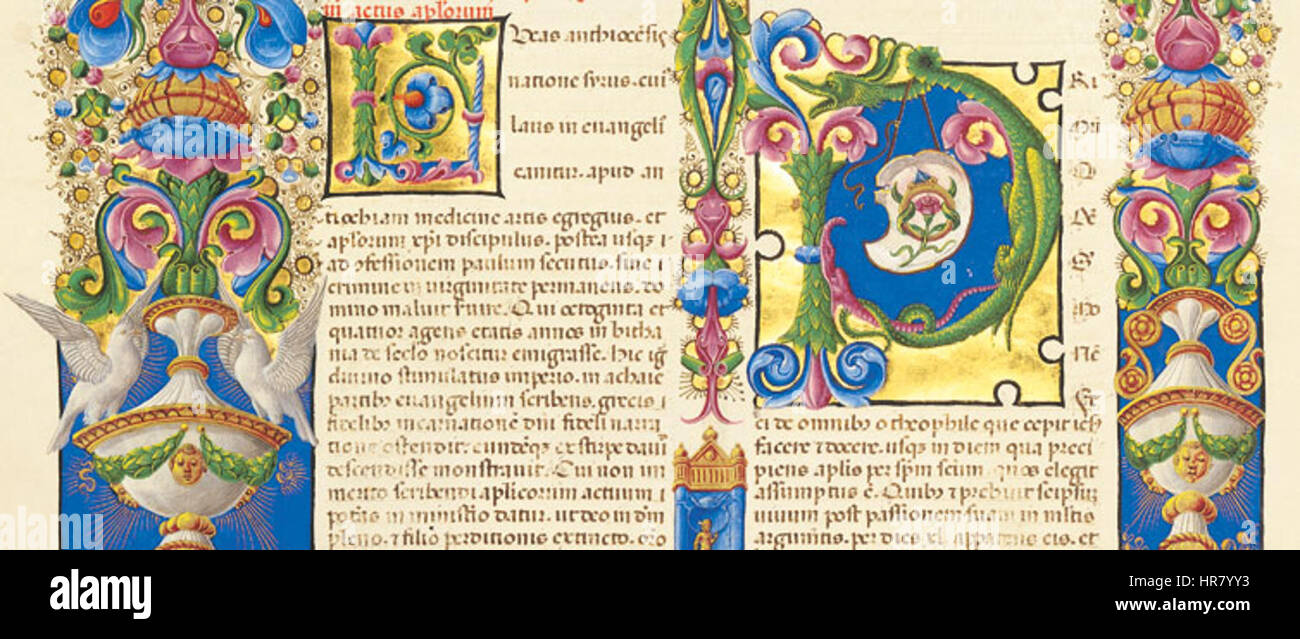 in actus apſorum
Vcas anthiocēſiſ
natione ſyrus. cuiꝰ
laus in euangelio
canitur. apud an
tiochiam medicine artis egregius. et
apſorum xp̄i diſcipulus. poſtea uſqꝫ
ad ꝯfeſſionem paulum ſecutus ſine
crimine in uirginitate permanens. do
mino maluit ſeruire. Qui octoginta et
quattuor agens etatis annos in bitha
nia de ſeclo noſcitur emigraſſe. hic
diuino ſtimulatus imperio. in achaie
partibꝰ euangelium ſcribens. grecis
fidelibꝰ incarnationē dn̄i fideli narra
tione oſtendit. eundēqꝫ ex ſtirpe dauit
deſcendiſſe monſtrauit. Cui non im
merito ſcribendi aplicorum actuum
poteſtas in miniſterio datur. ut deo in dm̄
pleno. et filio perditionis extincto. oro
RI
MŪ
DĒ
SER
MO
NĒ
FE
ci de omnibꝰ o theophile que cepit ieſus
facere et docere. uſqꝫ in diem qua preci
piens aplis per ſpm̄ ſcm̄. quos elegit
aſſumptus ē. Quibꝰ et prebuit ſeipſum
uiuum poſt paſſionem ſuam in mltis
argumētis. per dies xl apparens eis. et
alamy
alamy stock photo
HR7YY3
www.alamy.com